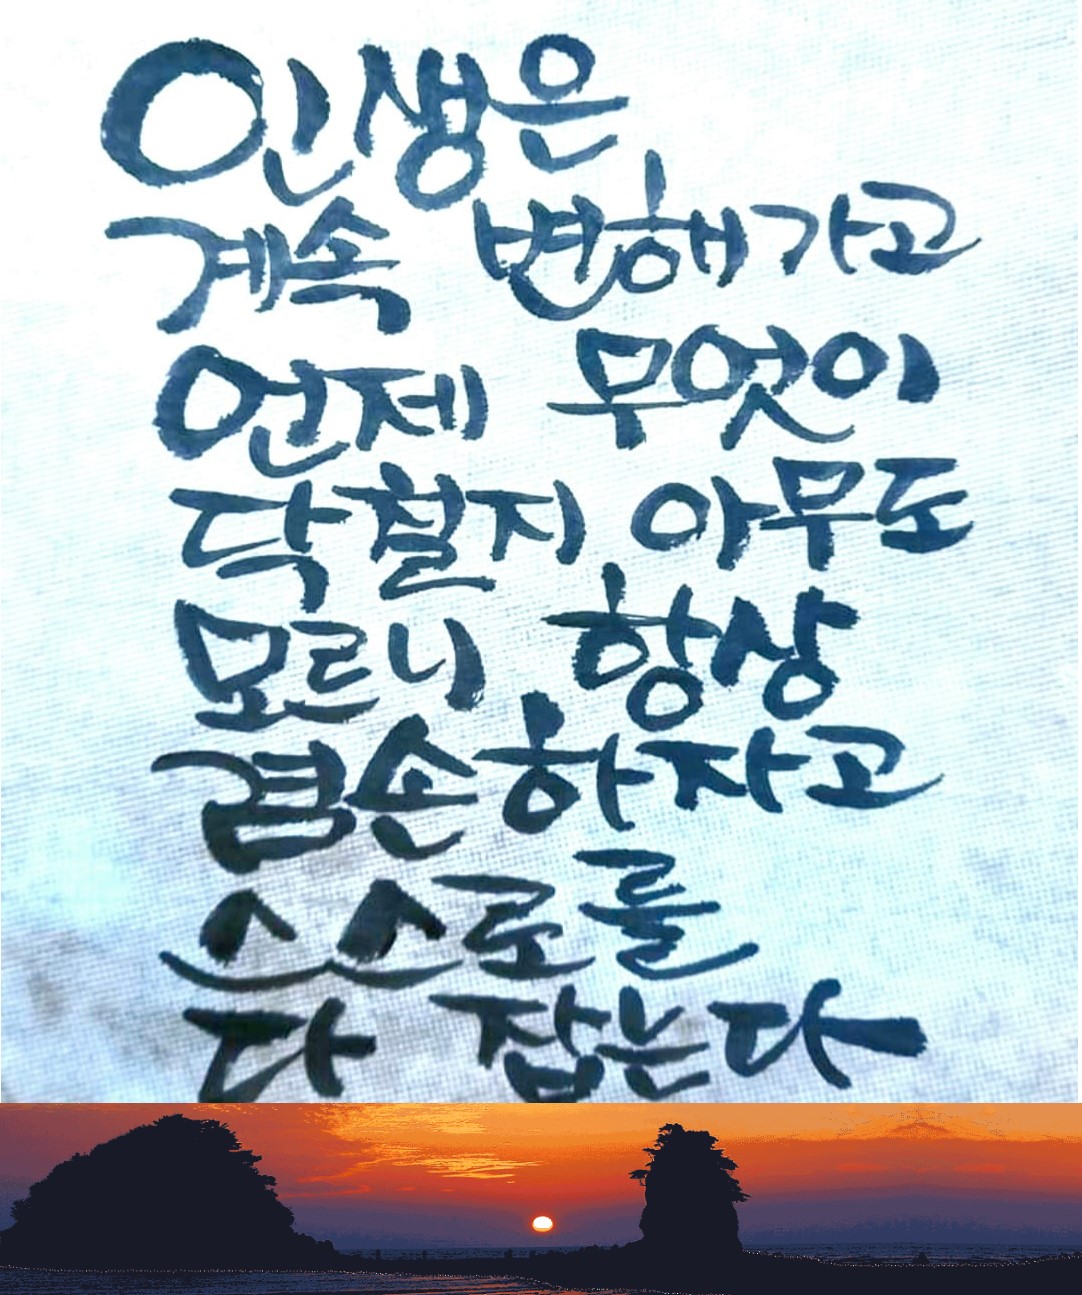 인생은
계속 변해가고
언제 무엇이
닥칠지 아무도
모르니 항상
겸손하자고
스스로를
다 잡는다